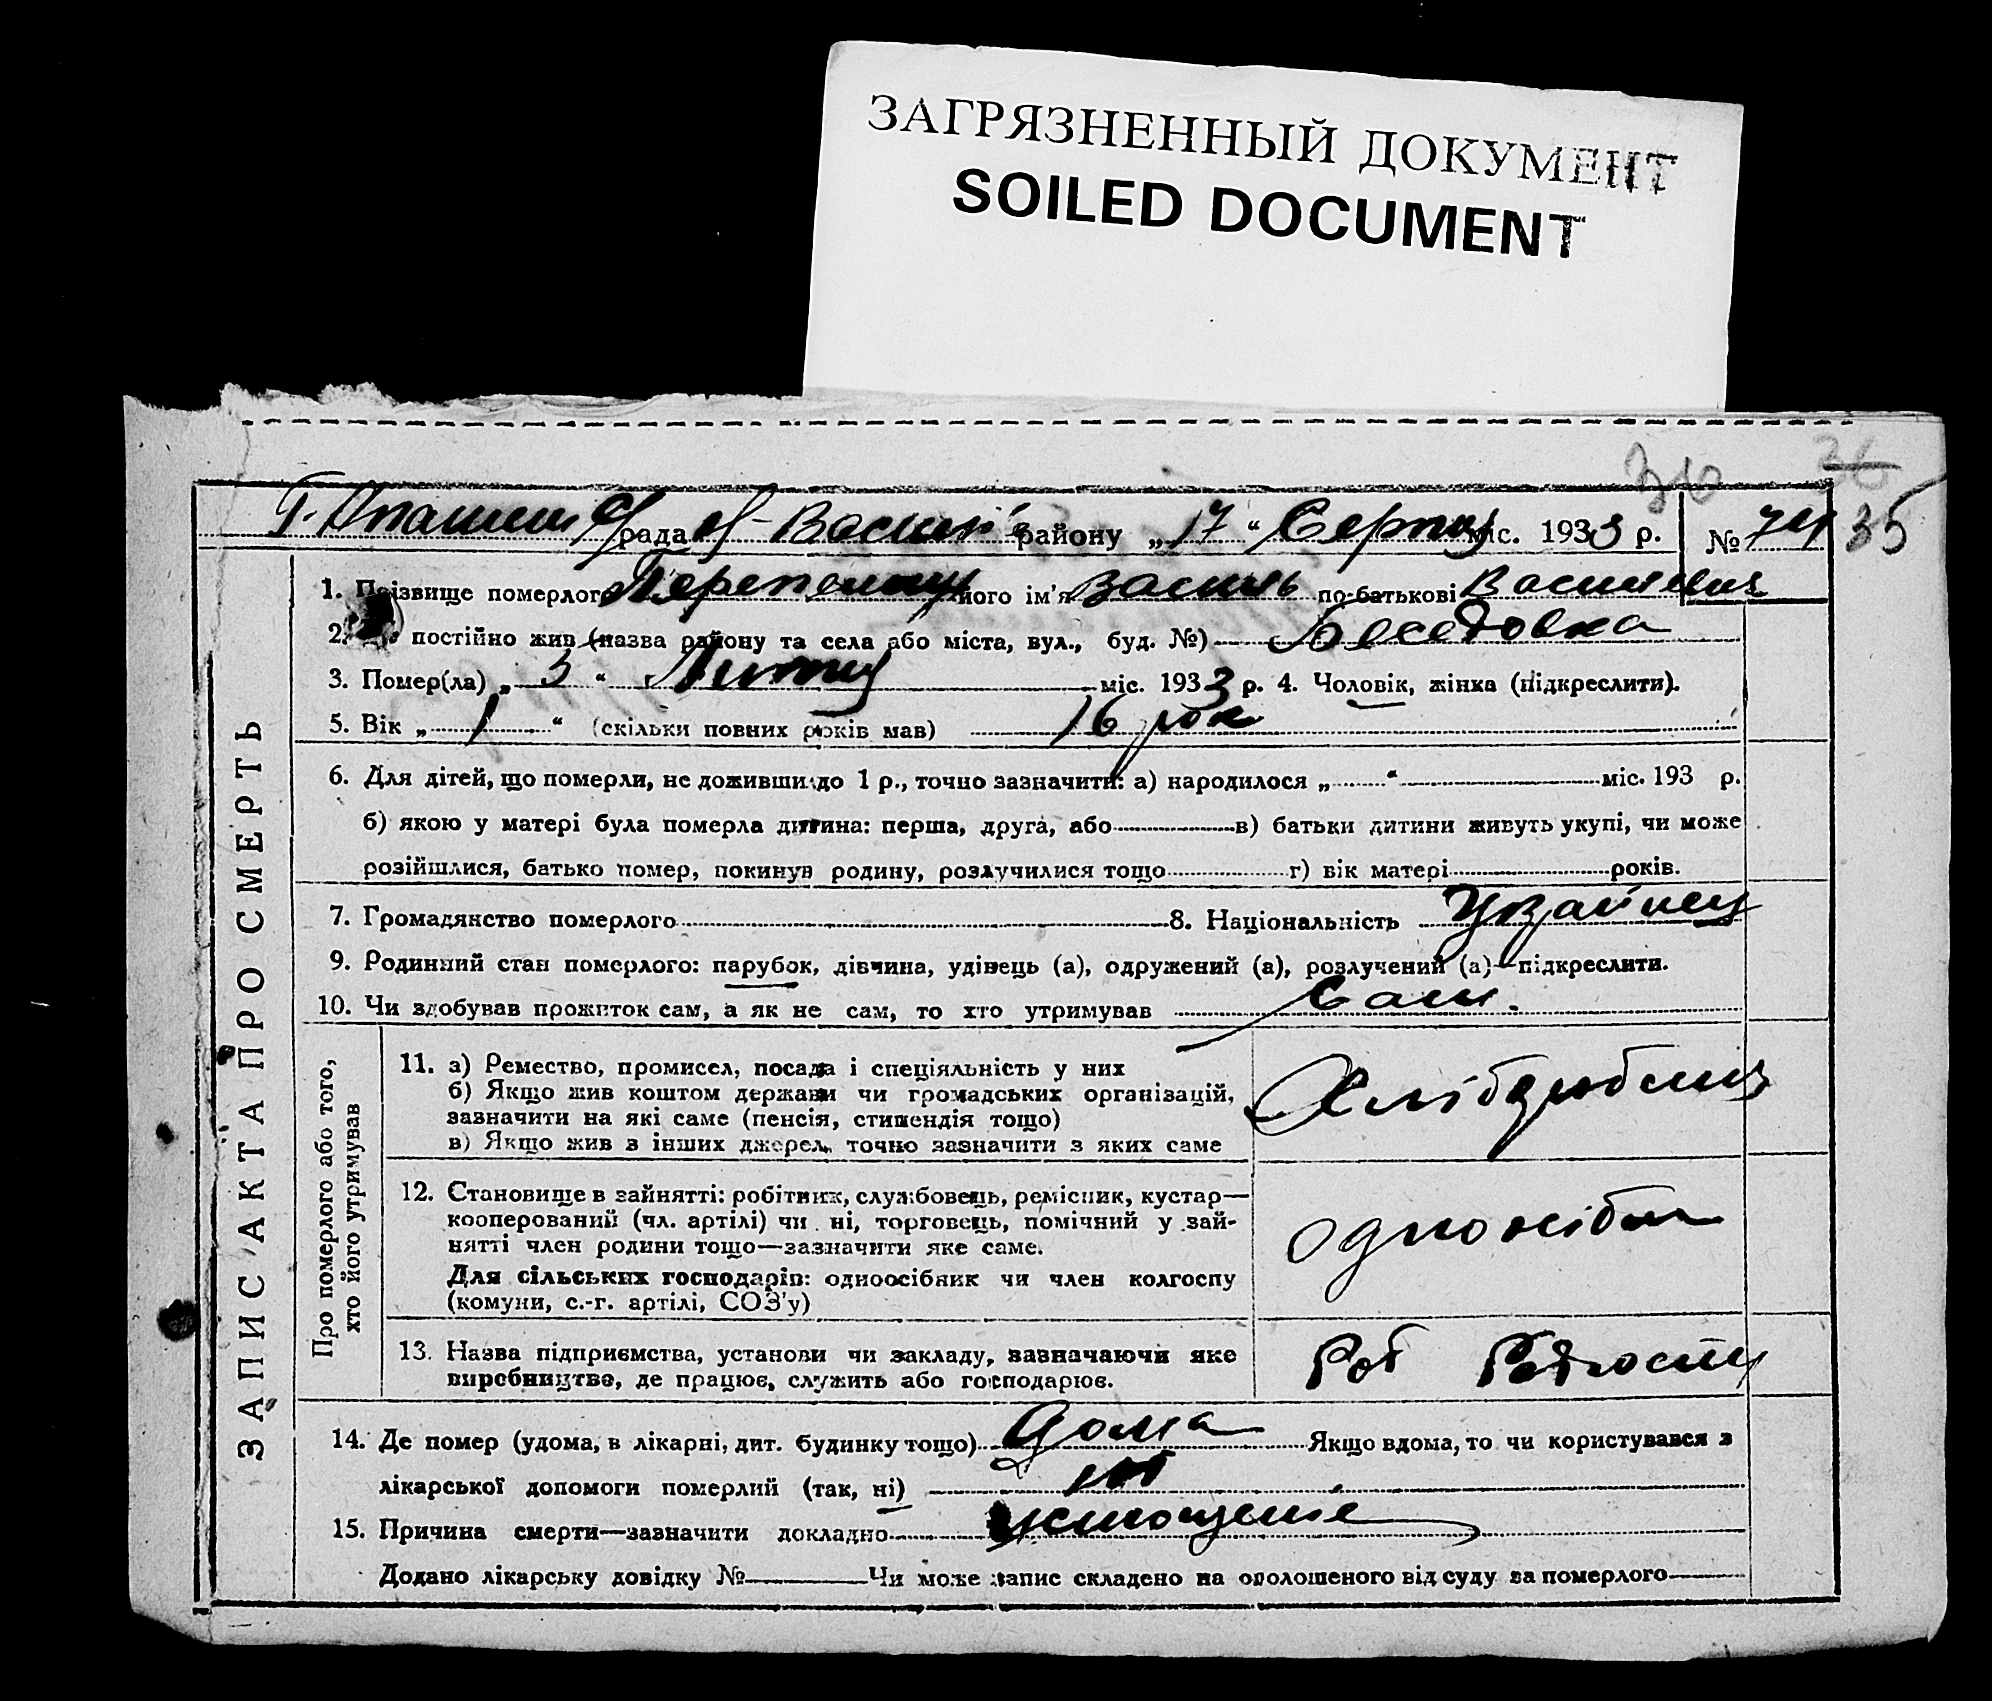 ЗАГРЯЗНЕННЫЙ ДОКУМЕНТ
SOILED DOCUMENT
36
35
рада району „17“ Серпня міс. 1933 р. № 74
1. Прізвище померлого його ім'я Василь по-батькові Василевич
2. постійно жив (назва району та села або міста, вул., буд. №) Беседовка
3. Помер(ла) „3“ Липня міс. 1933 р. 4. Чоловік, жінка (підкреслити).
5. Вік „ “ (скільки повних років мав) 16 рок
6. Для дітей, що померли, не доживши до 1 р., точно зазначити: а) народилося „ “ міс. 193 р.
б) якою у матері була померла дитина: перша, друга, або в) батьки дитини живуть укупі, чи може
розійшлися, батько помер, покинув родину, розлучилися тощо г) вік матері років.
7. Громадянство померлого 8. Національність Украйнец
9. Родинний стан померлого: парубок, дівчина, удівець (а), одружений (а), розлучений (а)—підкреслити.
10. Чи здобував прожиток сам, а як не сам, то хто утримував Сам.
ЗАПИС АКТА ПРО СМЕРТЬ
Про померлого або того,
хто його утримував
11. а) Ремество, промисел, посада і спеціяльність у них
б) Якщо жив коштом держави чи громадських організацій,
зазначити на які саме (пенсія, стипендія тощо)
в) Якщо жив з інших джерел, точно зазначити з яких саме
Хлібороб
12. Становище в зайнятті: робітник, службовець, ремісник, кустар—
кооперований (чл. артілі) чи ні, торговець, помічний у зай-
нятті член родини тощо—зазначити яке саме.
Для сільських господарів: одноосібник чи член колгоспу
(комуни, с.-г. артілі, СОЗ'у)
одноосібн
13. Назва підприємства, установи чи закладу, зазначаючи яке
виробництво, де працює, служить або господарює.
Роб
14. Де помер (удома, в лікарні, дит. будинку тощо) Дома Якщо вдома, то чи користувався з
лікарської допомоги померлий (так, ні)
15. Причина смерти—зазначити докладно истощеніе
Додано лікарську довідку № Чи може запис складено на оголошеного від суду за померлого